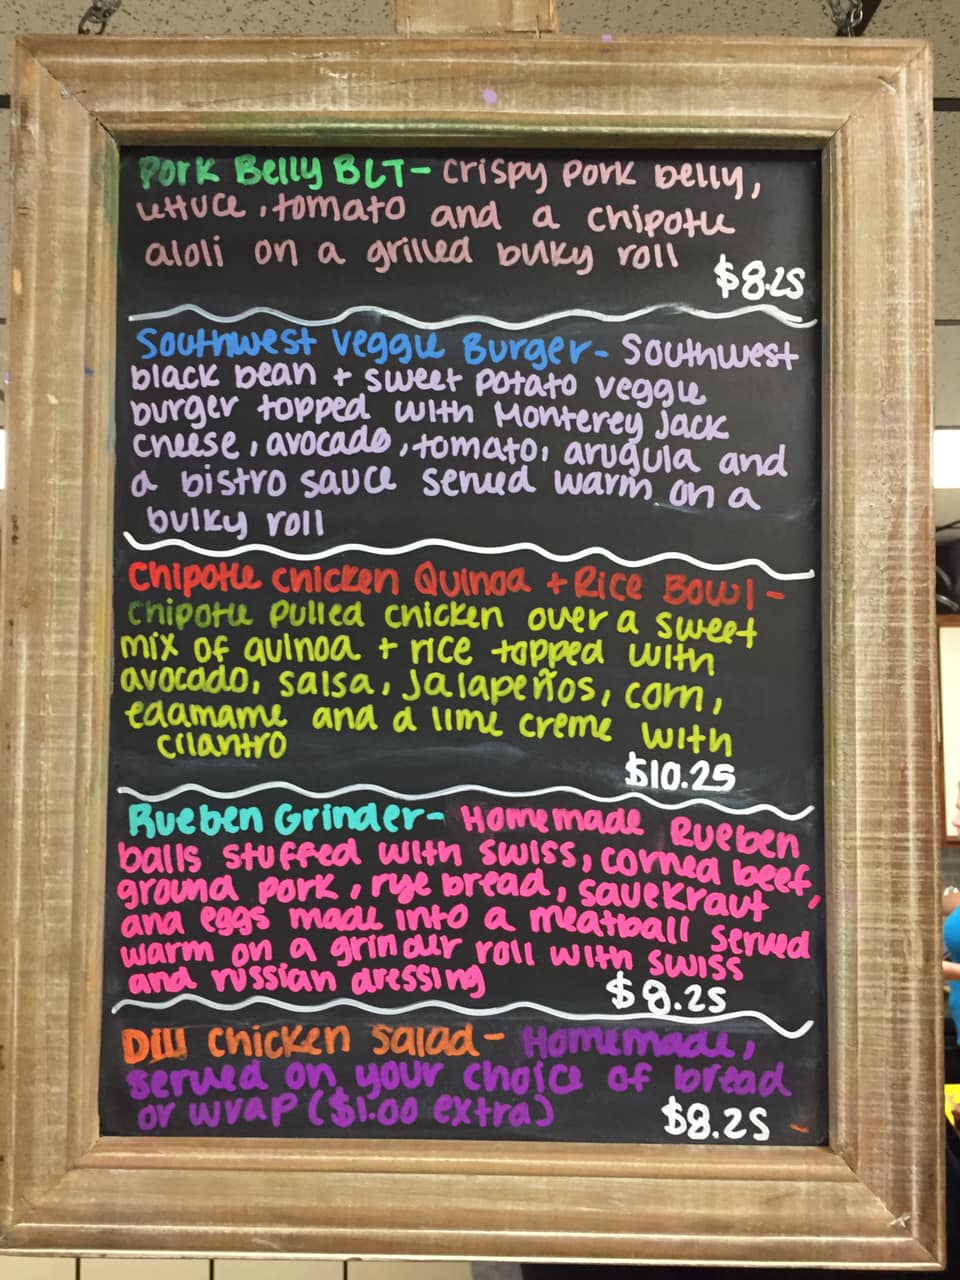 Pork Belly BLT- crispy pork belly,
lettuce, tomato and a chipotle
aioli on a grilled bulky roll
$8.25
Southwest Veggie Burger- Southwest
black bean + sweet potato veggie
burger topped with Monterey Jack
cheese, avocado, tomato, arugula and
a bistro sauce served warm on a
bulky roll
Chipotle Chicken Quinoa + Rice Bowl-
Chipotle pulled chicken over a sweet
mix of quinoa + rice topped with
avocado, salsa, Jalapeños, corn,
edamame and a lime creme with
cilantro
$10.25
Rueben Grinder- Homemade Rueben
balls stuffed with swiss, corned beef,
ground pork, rye bread, sauekraut
and eggs made into a meatball served
warm on a grinder roll with swiss
and russian dressing
$8.25
Dill Chicken Salad- Homemade,
served on your choice of bread
or wrap ($1.00 extra)
$8.25